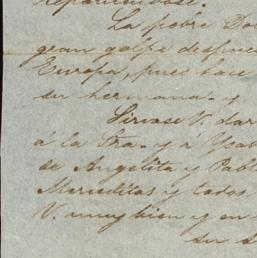 La pobre Do
gran golpe despues
Europa, pues hace
su hermana y
Sirvase V. dar
á la Sra. y á Ysab
se Angelita y Pabl
Mercedites y todos
V. muy bien y en
su s